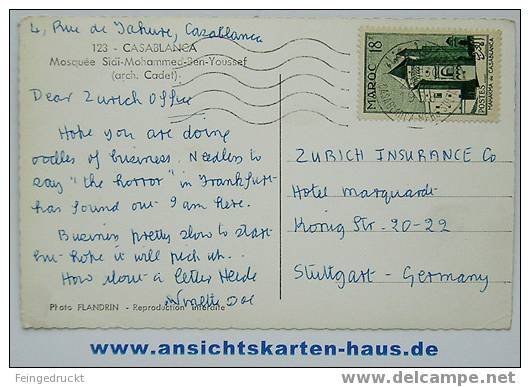 4, Rue de Jakure, Casablanca
123 - CASABLANCA
Mosquée Sidi-Mohammed-Ben-Youssef
(arch. Cadet)
Dear Zurich Office
Hope you are doing
oodles of business. Needless to
say "the horror" in Frankfurt
has found out I am here.
Business pretty slow to start
but hope it will pick up.
How about a letter Heide
Photo FLANDRIN - Reproduction interdite
MAROC 18F
POSTES
MAHAKMA de CASABLANCA
ZURICH INSURANCE Co
Hotel Marquardt
König Str. 20-22
Stuttgart - Germany
www.ansichtskarten-haus.de
Feingedruckt
delcampe.net